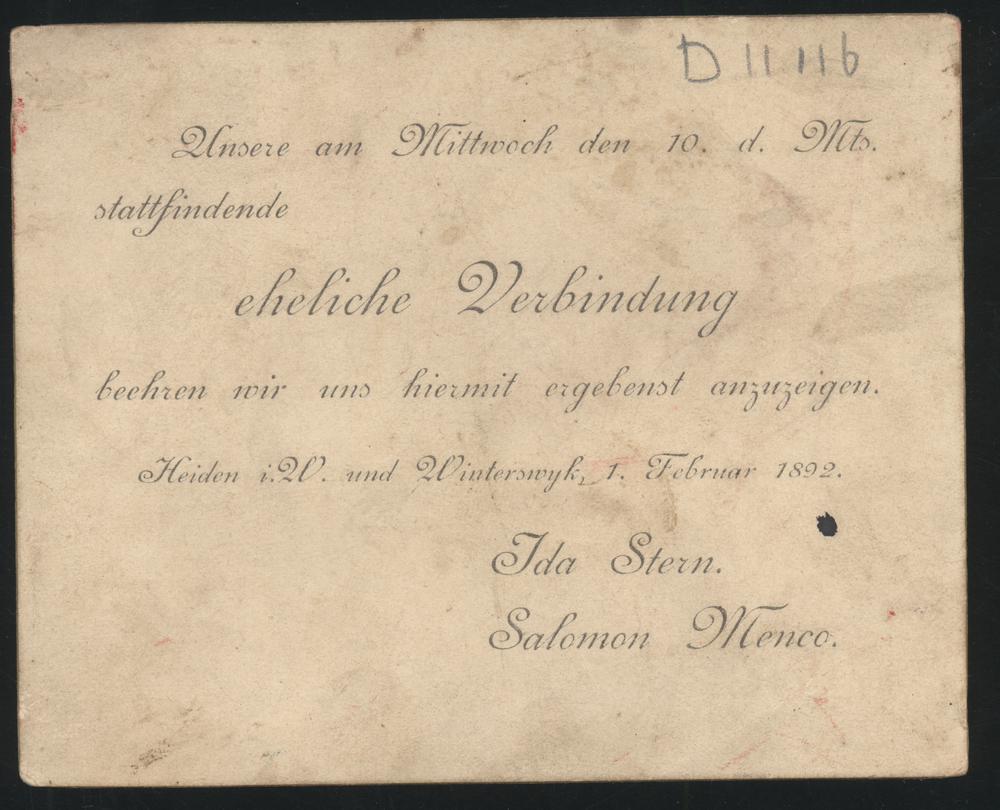 D 11 116
Unsere am Mittwoch den 10. d. Mts.
stattfindende
eheliche Verbindung
beehren wir uns hiermit ergebenst anzuzeigen.
Heiden i.W. und Winterswyk, 1. Februar 1892.
Ida Stern.
Salomon Menco.